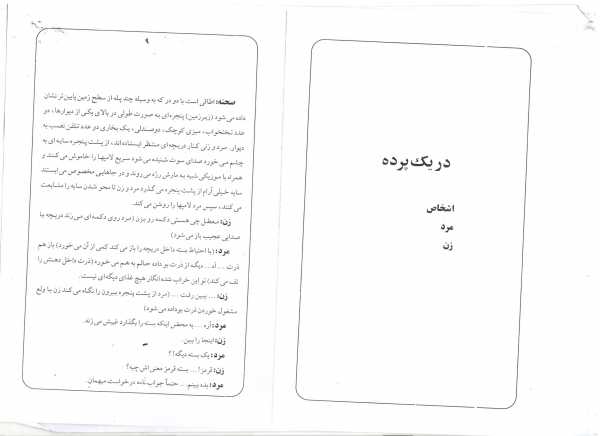 در یک پرده
اشخاص
مرد
زن
۹
صحنه: اطاقی است با دو در که به وسیله چند پله از سطح زمین پایین‌تر نشان
داده می‌شود (زیرزمین) پنجره‌ای به صورت طولی در بالای یکی از دیوارها، دو
عدد تختخواب، میزی کوچک، دو صندلی، یک بخاری دو عدد تلفن نصب به
دیوار. مرد و زنی کنار دریچه‌ای منتظر ایستاده‌اند، از پشت پنجره سایه‌ای به
چشم می‌خورد صدای سوت شنیده می‌شود سریع لامپها را خاموش می‌کنند و
همراه با موزیکی شبیه به مارش رژه می‌روند و در جاهایی مخصوص می‌ایستند
سایه خیلی آرام از پشت پنجره می‌گذرد مرد و زن تا محو شدن سایه را متابعت
می‌کنند، سپس مرد لامپها را روشن می‌کند.
زن: معطل چی هستی دکمه رو بزن (مرد روی دکمه‌ای می‌زند دریچه با
صدایی عجیب باز می‌شود)
مرد: (با احتیاط بسته داخل دریچه را باز می‌کند کمی از آن می‌خورد) باز هم
ذرت ... اه... دیگه از ذرت بو داده حالم به هم می‌خورد (ذرت داخل دهنش را
تف می‌کند) تو این خراب شده انگار هیچ غذای دیگه‌ای نیست.
زن: ... ببین رفت ... (مرد از پشت پنجره بیرون را نگاه می‌کند زن با ولع
مشغول خوردن ذرت بوداده می‌شود)
مرد: آره ... به محض اینکه بسته را بگذارد غیبش می‌زند.
زن: اینجا را ببین.
مرد: یک بسته دیگه!؟
زن: قرمز!... بسته قرمز معنی‌اش چیه؟
مرد: بده ببینم... حتماً جواب نامه درخواست میهمان.